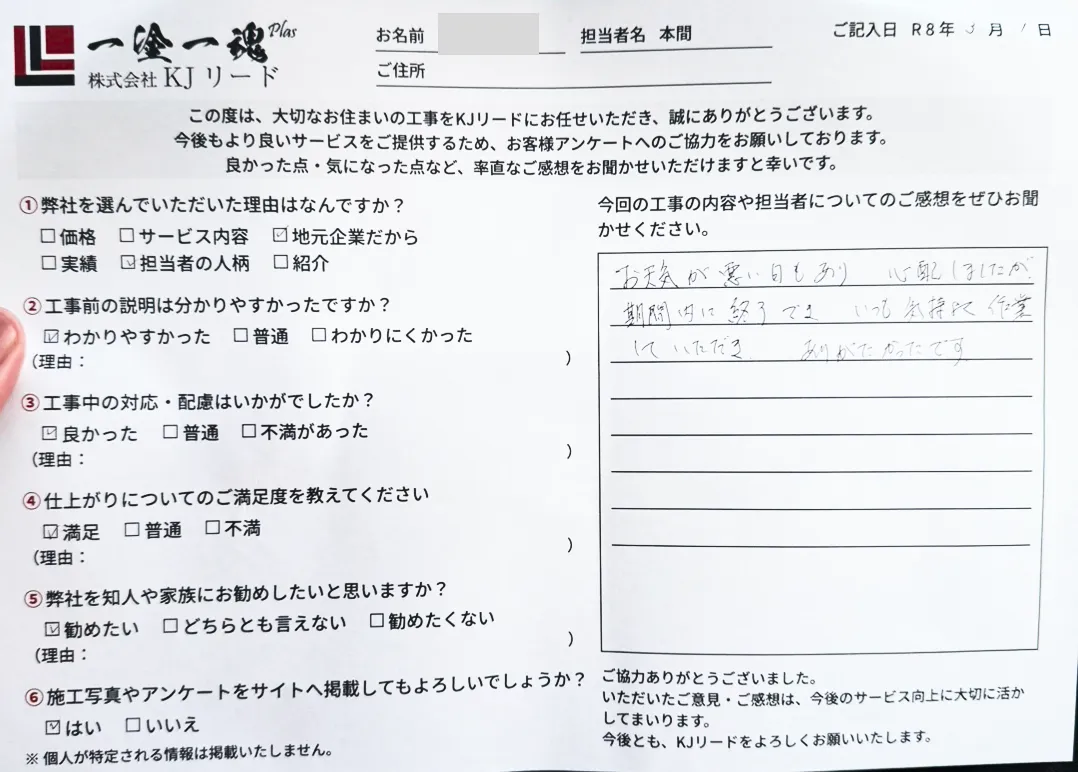 一塗一魂 Plas
株式会社 KJ リード
お名前
担当者名 本間
ご記入日 R8年 3月 1日
ご住所
この度は、大切なお住まいの工事をKJリードにお任せいただき、誠にありがとうございます。
今後もより良いサービスをご提供するため、お客様アンケートへのご協力をお願いしております。
良かった点・気になった点など、率直なご感想をお聞かせいただけますと幸いです。
①弊社を選んでいただいた理由はなんですか？
☐価格 ☐サービス内容 ☑地元企業だから
☐実績 ☑担当者の人柄 ☐紹介
②工事前の説明は分かりやすかったですか？
☑わかりやすかった ☐普通 ☐わかりにくかった
（理由： ）
③工事中の対応・配慮はいかがでしたか？
☑良かった ☐普通 ☐不満があった
（理由： ）
④仕上がりについてのご満足度を教えてください
☑満足 ☐普通 ☐不満
（理由： ）
⑤弊社を知人や家族にお勧めしたいと思いますか？
☑勧めたい ☐どちらとも言えない ☐勧めたくない
（理由： ）
⑥施工写真やアンケートをサイトへ掲載してもよろしいでしょうか？
☑はい ☐いいえ
※ 個人が特定される情報は掲載いたしません。
今回の工事の内容や担当者についてのご感想をぜひお聞
かせください。
お天気が悪い日もあり 心配しましたが
期間内に終了でき いつも気持よく作業
していただき ありがたかったです
ご協力ありがとうございました。
いただいたご意見・ご感想は、今後のサービス向上に大切に活か
してまいります。
今後とも、KJリードをよろしくお願いいたします。